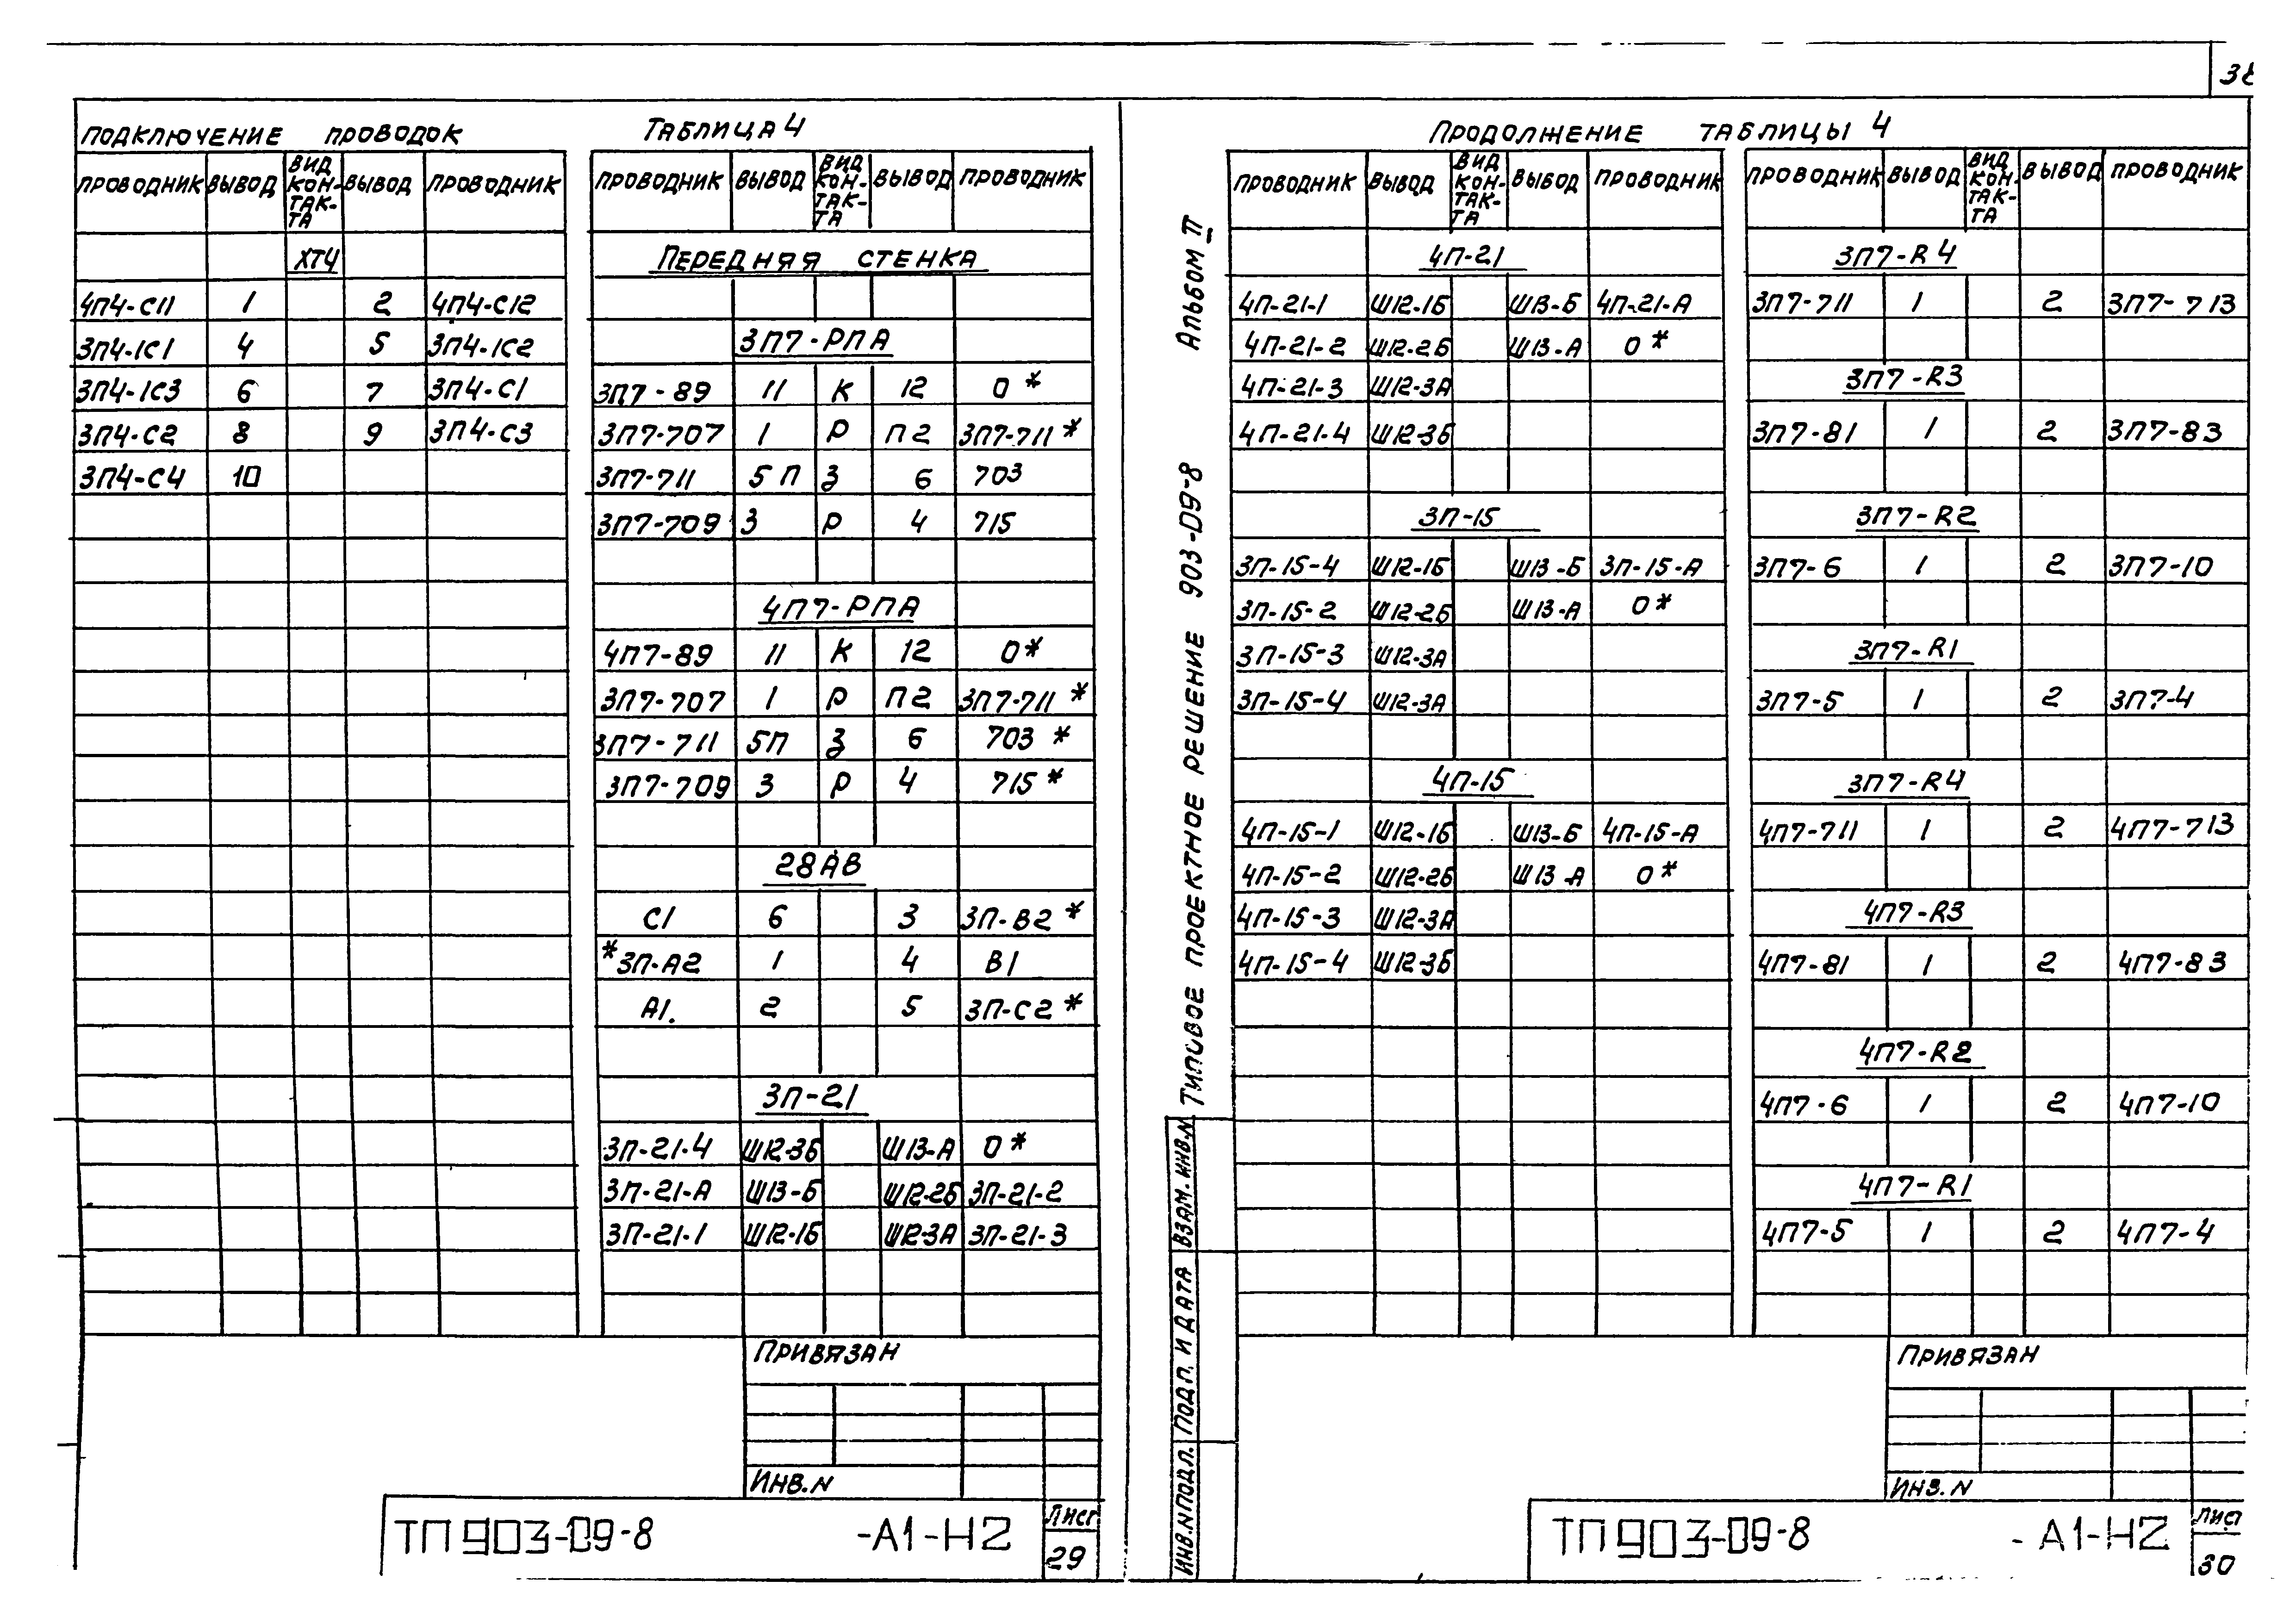 38
ПОДКЛЮЧЕНИЕ ПРОВОДОК ТАБЛИЦА 4
ПРОВОДНИК ВЫВОД ВИД КОН-ТАК-ТА ВЫВОД ПРОВОДНИК
ХТ4
4П4-С11 1 2 4П4-С12
3П4-1С1 4 5 3П4-1С2
3П4-1С3 6 7 3П4-С1
3П4-С2 8 9 3П4-С3
3П4-С4 10
ПРОВОДНИК ВЫВОД ВИД КОН-ТАК-ТА ВЫВОД ПРОВОДНИК
ПЕРЕДНЯЯ СТЕНКА
3П7-РПА
3П7-89 11 К 12 0*
3П7-707 1 Р П2 3П7-711*
3П7-711 5П З 6 703
3П7-709 3 Р 4 715
4П7-РПА
4П7-89 11 К 12 0*
3П7-707 1 Р П2 3П7-711*
3П7-711 5П З 6 703*
3П7-709 3 Р 4 715*
28АВ
С1 6 3 3П-В2*
*3П-А2 1 4 В1
А1. 2 5 3П-С2*
3П-21
3П-21-4 Ш12-3Б Ш13-А 0*
3П-21-А Ш13-Б Ш12-2Б 3П-21-2
3П-21-1 Ш12-1Б Ш12-3А 3П-21-3
ПРИВЯЗАН
ИНВ.N
ТП 903-09-8 -А1-Н2
Лист
29
АЛЬБОМ II
ТИПОВОЕ ПРОЕКТНОЕ РЕШЕНИЕ 903-09-8
ИНВ.N ПОДЛ. ПОДП. И ДАТА ВЗАМ. ИНВ.N
ПРОДОЛЖЕНИЕ ТАБЛИЦЫ 4
ПРОВОДНИК ВЫВОД ВИД КОН-ТАК-ТА ВЫВОД ПРОВОДНИК
4П-21
4П-21-1 Ш12-1Б Ш13-Б 4П-21-А
4П-21-2 Ш12-2Б Ш13-А 0*
4П-21-3 Ш12-3А
4П-21-4 Ш12-3Б
3П-15
3П-15-4 Ш12-1Б Ш13-Б 3П-15-А
3П-15-2 Ш12-2Б Ш13-А 0*
3П-15-3 Ш12-3А
3П-15-4 Ш12-3А
4П-15
4П-15-1 Ш12-1Б Ш13-Б 4П-15-А
4П-15-2 Ш12-2Б Ш13-А 0*
4П-15-3 Ш12-3А
4П-15-4 Ш12-3Б
ПРОВОДНИК ВЫВОД ВИД КОН-ТАК-ТА ВЫВОД ПРОВОДНИК
3П7-R4
3П7-711 1 2 3П7-713
3П7-R3
3П7-81 1 2 3П7-83
3П7-R2
3П7-6 1 2 3П7-10
3П7-R1
3П7-5 1 2 3П7-4
3П7-R4
4П7-711 1 2 4П7-713
4П7-R3
4П7-81 1 2 4П7-83
4П7-R2
4П7-6 1 2 4П7-10
4П7-R1
4П7-5 1 2 4П7-4
ПРИВЯЗАН
ИНВ.N
ТП 903-09-8 -А1-Н2
Лист
30